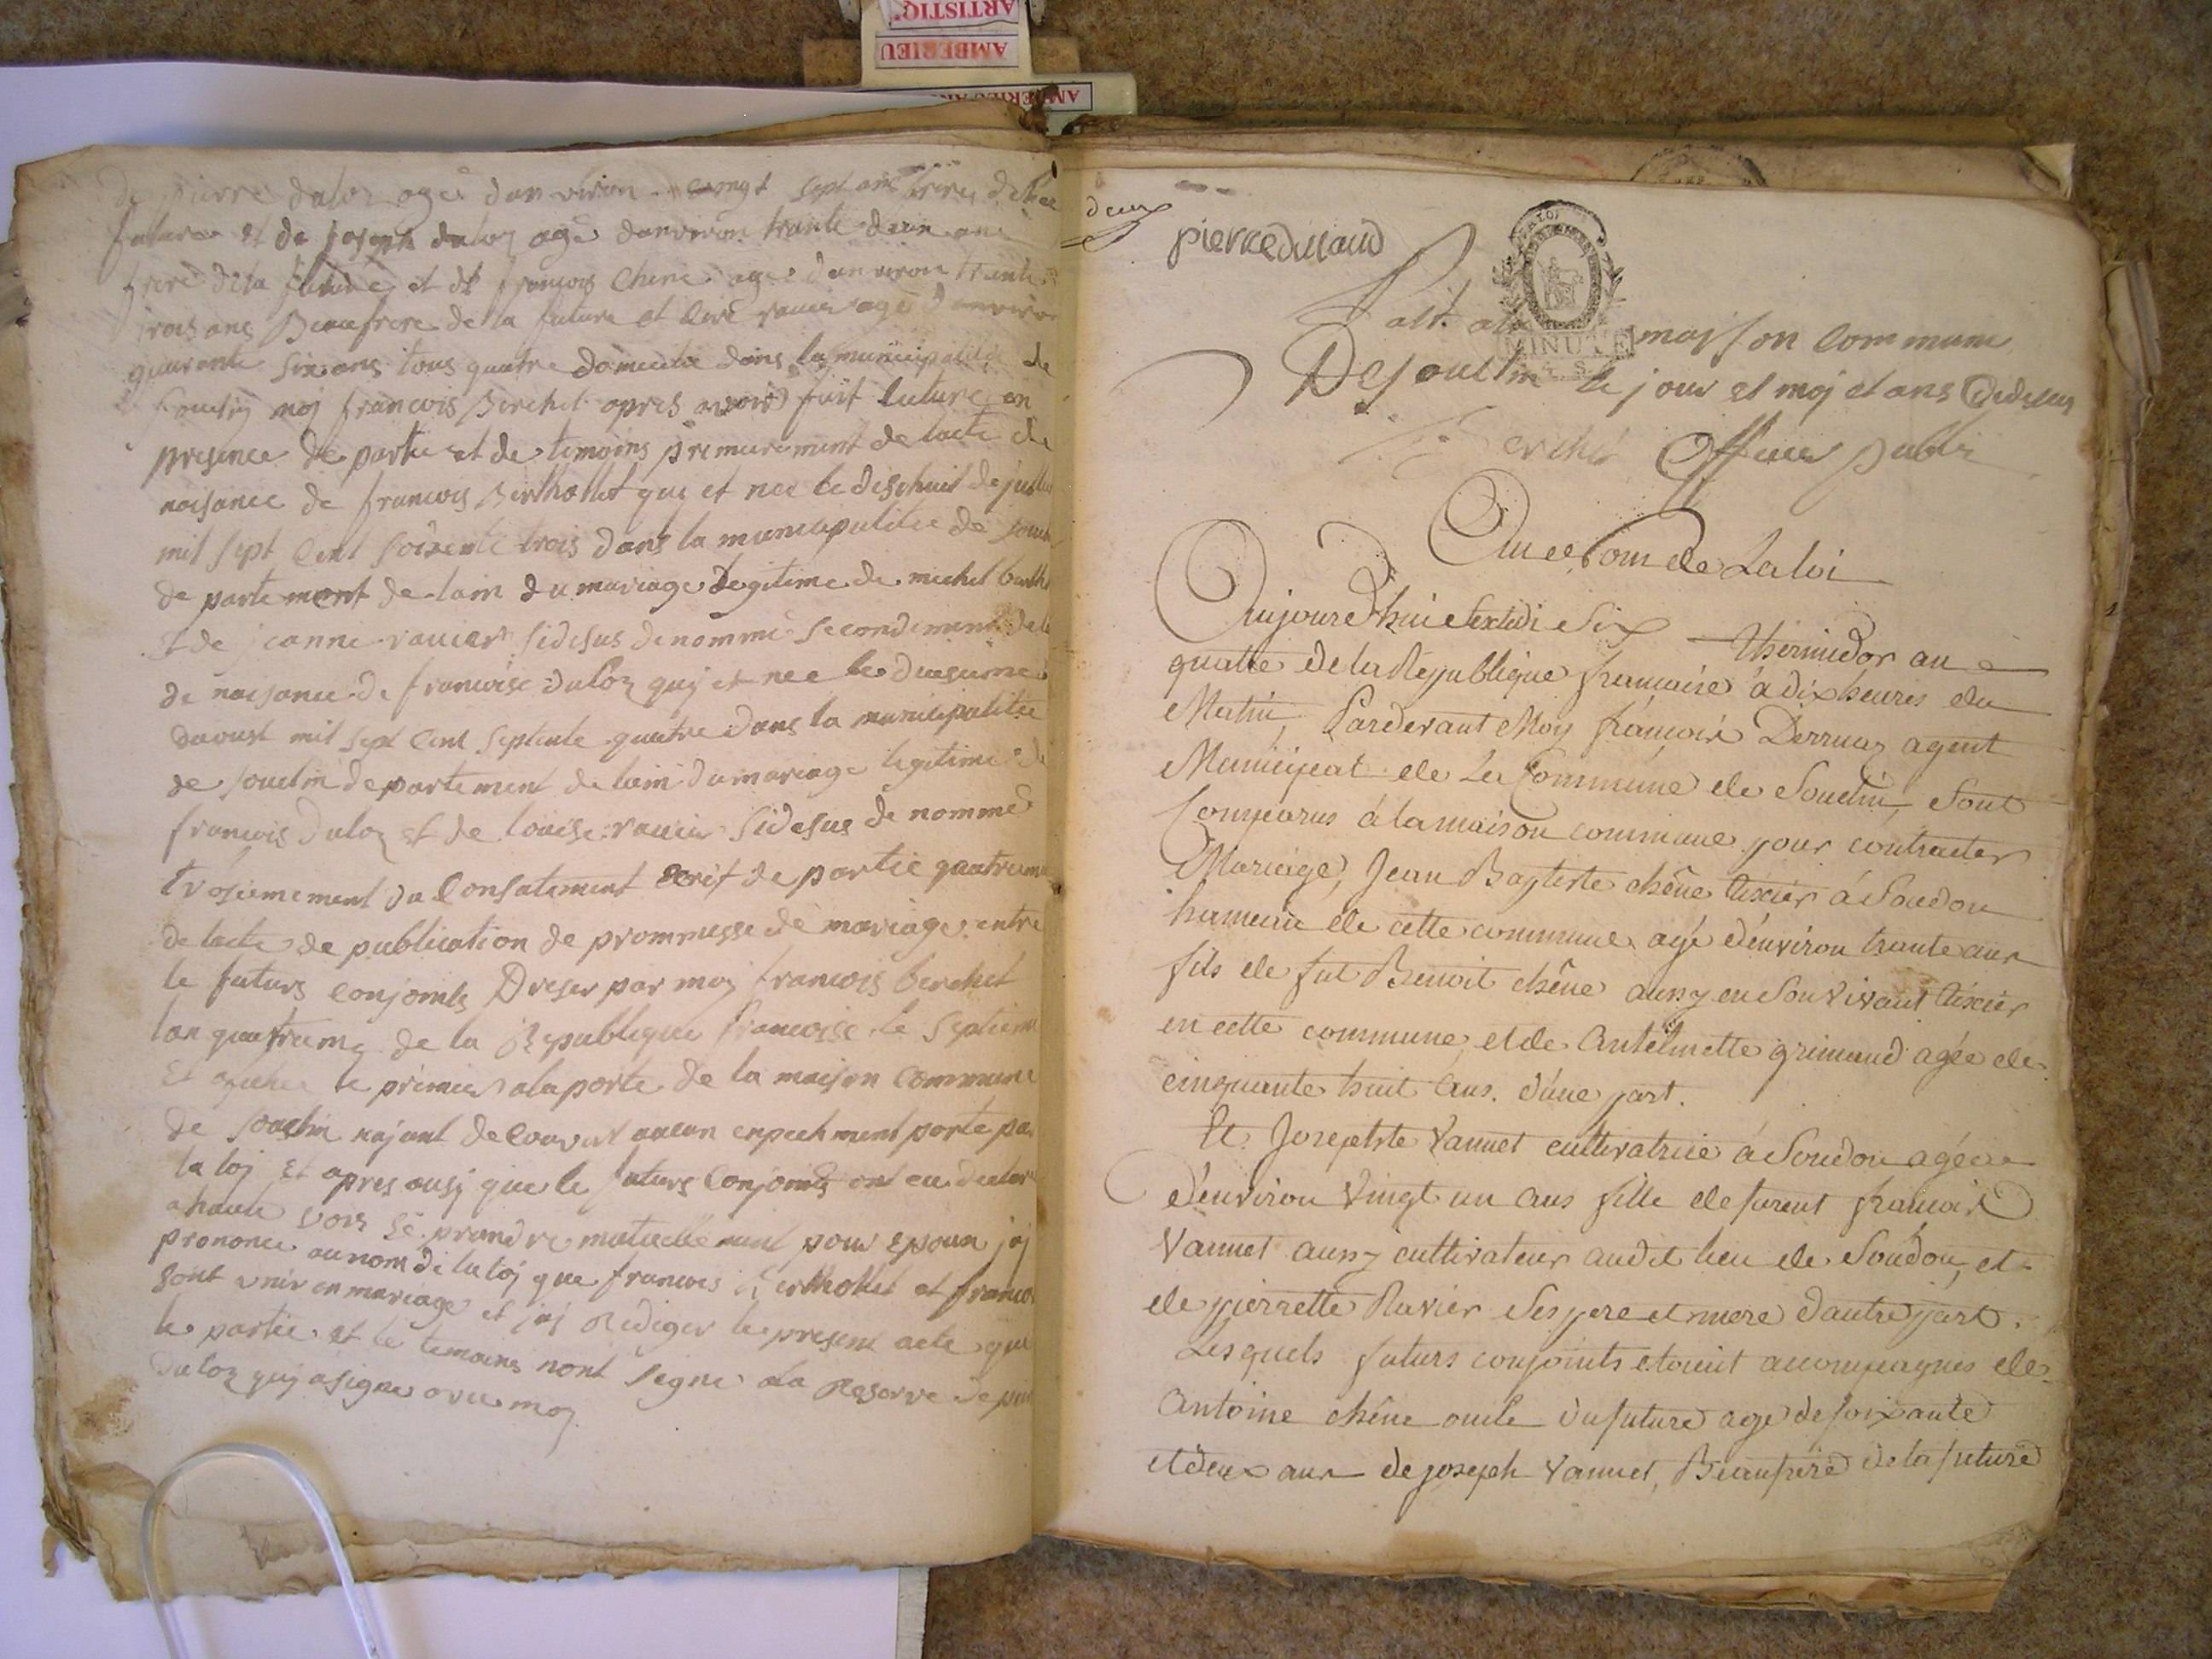 ARTISTIQ
AMBERIEU
de pierre duloz age danviron vingt sept ans frere de la
future et de joseph duloz age danviron trante deux ans
frere de la future et de francois Chene age danviron trante
trois ans Beaufrere de la future et rauier age danviron
quarante six ans tous quatre domicilie dans la municipalite de
Souclin moj francois Berchet apres avoir fait luture en
presence de partie et de temoins premierement de lacte de
naisance de francois Berthollet quj et nee le dishuit de juillet
mil sept Cent soisente trois dans la municipalitee de
departement de lain du mariage legitime de michel
et de jeanne rauier sidesus denomme secondement de
de naisance de francoise duloz quj et nee le
daoust mil sept Cent septente quatre dans la municipalitee
de souclin departement de lain du mariage legitime de
francois duloz et de louise rauier sidesus denomme
troisiemement du Consatement ecrit de partie quatrieme
de lacte de publication de prommesse de mariage entre
le futurs conjoints Dreser par moj francois berchet
lan quatrieme de la Republique francoise le septieme
et afichee le premier a la porte de la maison Commune
de souclin najant decouvert aucun enpechment porte par
la loj et apres ausj que le futurs Conjoints ont eu declare
a haute voix se prandre mutuellement pour epoux jaj
prononce au nom de la loj que francois Berthollet et
sont unir en mariage et jaj Rediger le present acte que
le partie et le temoins nont signe a la Reserve de
duloz quj a signe avec moj
deux
pierre duloud
MINUTE
fait a la maison Commune
De souclin le jour et moj et ans dedesus
Berchet Officier public
Au nom de La loi
Aujourd'hui Sextidi Six Thermidor an
quatre de la République française à dix heures du
Matin, Pardevant Moy françois Derruaz agent
Municipal de La Commune de Souclin, Sont
Comparus à la maison commune pour contracter
Mariage, Jean Baptiste chêne tixier à Soudon
hameau de cette commune agé d'environ trante ans
fils de fut Benoit chêne aussy en Son vivant tixier
en cette commune, et de Anthelmette grimaud agée de
cinquante huit ans. d'une part.
Et Josephte Vannet cultivatrice à Soudon agée
d'environ Vingt un ans fille de furent françois
Vannet aussy cultivateur audit lieu de Soudon, et
de pierrette Ravier Ses pere et mere d'autre part.
Lesquels futurs conjoints etoient accompagnes de
Antoine chêne oncle du future age de soixante
et deux ans de joseph Vannet, Beaupere de la future